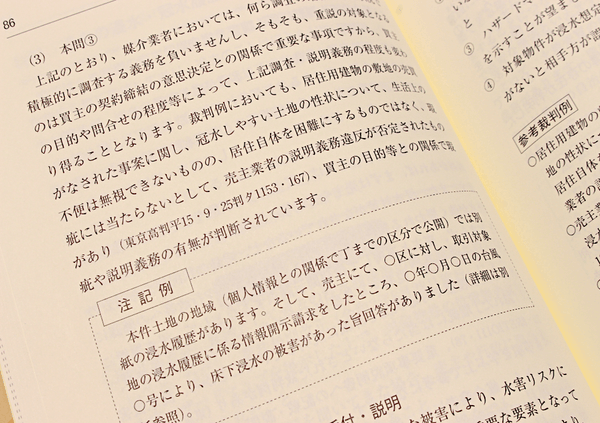 86
(3) 本問③
上記のとおり、媒介業者においては、何ら調査の
積極的に調査する義務を負いませんし、そもそも、重説の対象となる
のは買主の契約締結の意思決定との関係で重要な事項ですから、買主
の目的や問合せの程度等によって、上記調査・説明義務の程度も変わ
り得ることとなります。裁判例においても、居住用建物の敷地の売買
がなされた事案に関し、冠水しやすい土地の性状について、生活上の
不便は無視できないものの、居住自体を困難にするものではなく、瑕
疵には当たらないとして、売主業者の説明義務違反が否定されたもの
があり（東京高判平15・9・25判タ1153・167）、買主の目的等との関係で瑕
疵や説明義務の有無が判断されています。
注記例
本件土地の地域（個人情報との関係で丁までの区分で公開）では別
紙の浸水履歴があります。そして、売主にて、○区に対し、取引対象
地の浸水履歴に係る情報開示請求をしたところ、○年○月○日の台風
○号により、床下浸水の被害があった旨回答がありました（詳細は別
参照）。
付・説明
な被害により、水害リスクに
要な要素となって
ハザードマ
を示すことが望ま
③
④
対象物件が浸水想定
がないと相手方が誤
参考裁判例
○居住用建物の
地の性状につ
居住自体を
業者の説
○売主業